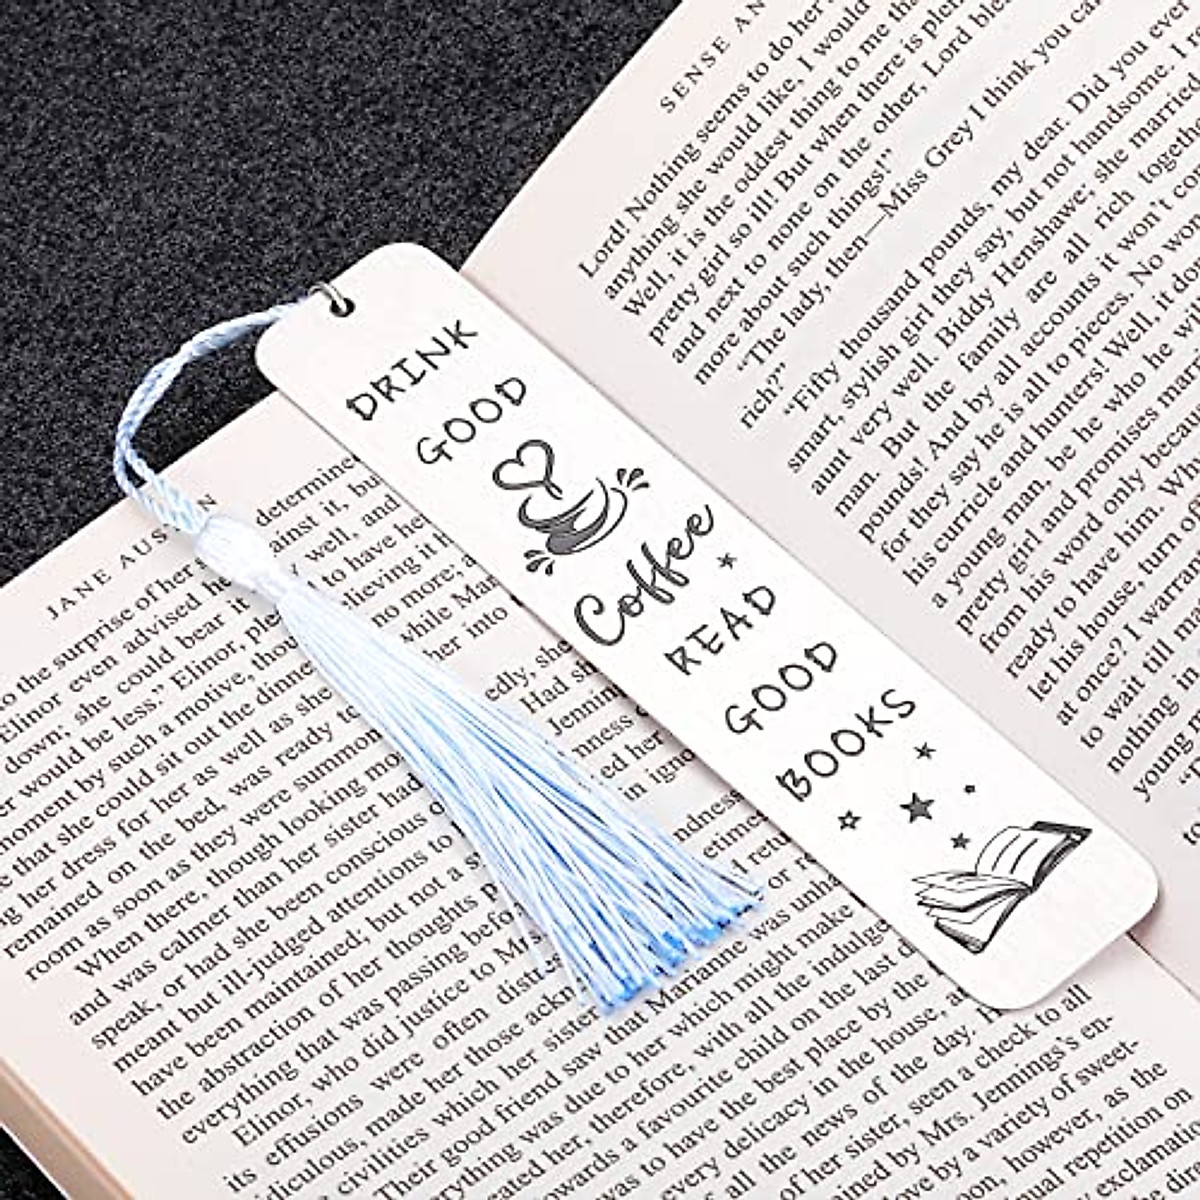 JANE AUS N
determine
o the surprise of her ainst it, but
Elinor even advised he well, and
down; she could bear it to have he
r would be less.” Elinor, ple elieving it h
moment by such a motive, thou no more; a
e that she could sit out the dinne while Mar
g her dress for her as well as she her into
remained on the bed, was ready to
room as soon as they were summon edly, she
When there, though looking mo Had s
and was calmer than her sister had Jennin
speak, or had she been conscious o nness
meant but ill-judged attentions to ed her
have been maintained; but not a s in igno
the abstraction of her thoughts p
everything that was passing before ndness
Elinor, who did justice to Mrs etime
its effusions were often distre d retur
diculous, made her those ackn or
civilities which her siste was unha
Their good friend saw that Marianne
rything was due to her which might make
ated her, therefore, with all the indulge
owards a favourite child on the last d
was to have the best place by the
every delicacy in the house, a
the news of the day. H
of her sister, seen a check to all
ined by Mrs. Jennings's en-
love by a variety of sweet-
on, however, as the
ual repetition on
exclamatio
DRINK
GOOD
Coffee
READ
GOOD
BOOKS
SENSE AN
Lord! Nothing seems to do her
anything she would like, I would
Well, it is the oddest thing to me tha
pretty girl so ill! But when there is plen
and next to none on the other, Lord ble
more about such things!”
“The lady, then—Miss Grey I think you cal
rich?”
“Fifty thousand pounds, my dear. Did you ever
smart, stylish girl they say, but not handsome. I re
aunt very well. Biddy Henshawe; she married
man. But the family are all rich togethe
pounds! And by all accounts it won't co
for they say he is all to pieces. No won
his curricle and hunters! Well, it do
a young man, be he who he w
pretty girl and promises marr
from his word only becau
ready to have him. Why
let his house, turn o
at once? I warra
to wait till m
nothing in
young